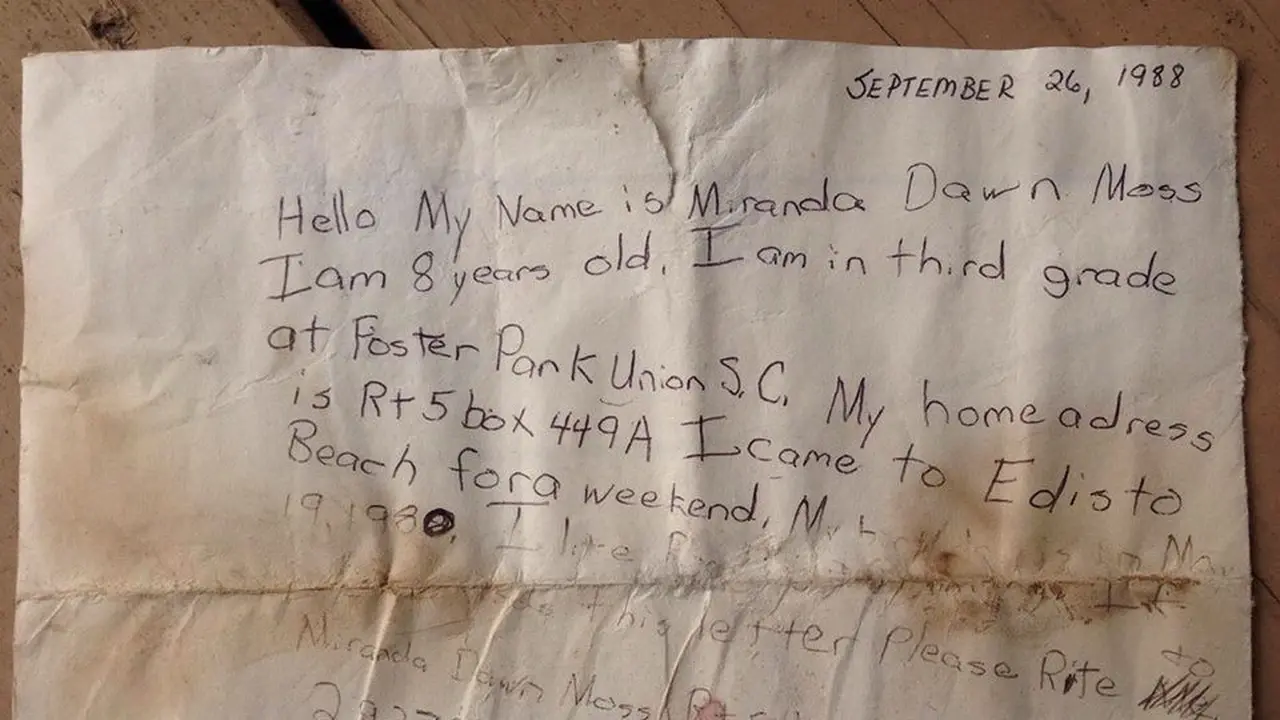 SEPTEMBER 26, 1988
Hello My Name is Miranda Dawn Moss
I am 8 years old. I am in third grade
at Foster Park Union S.C. My home adress
is Rt 5 box 449A I came to Edisto
Beach for a weekend. My
19, 1980. I like
this letter Please Rite to
Miranda Dawn Moss Rt